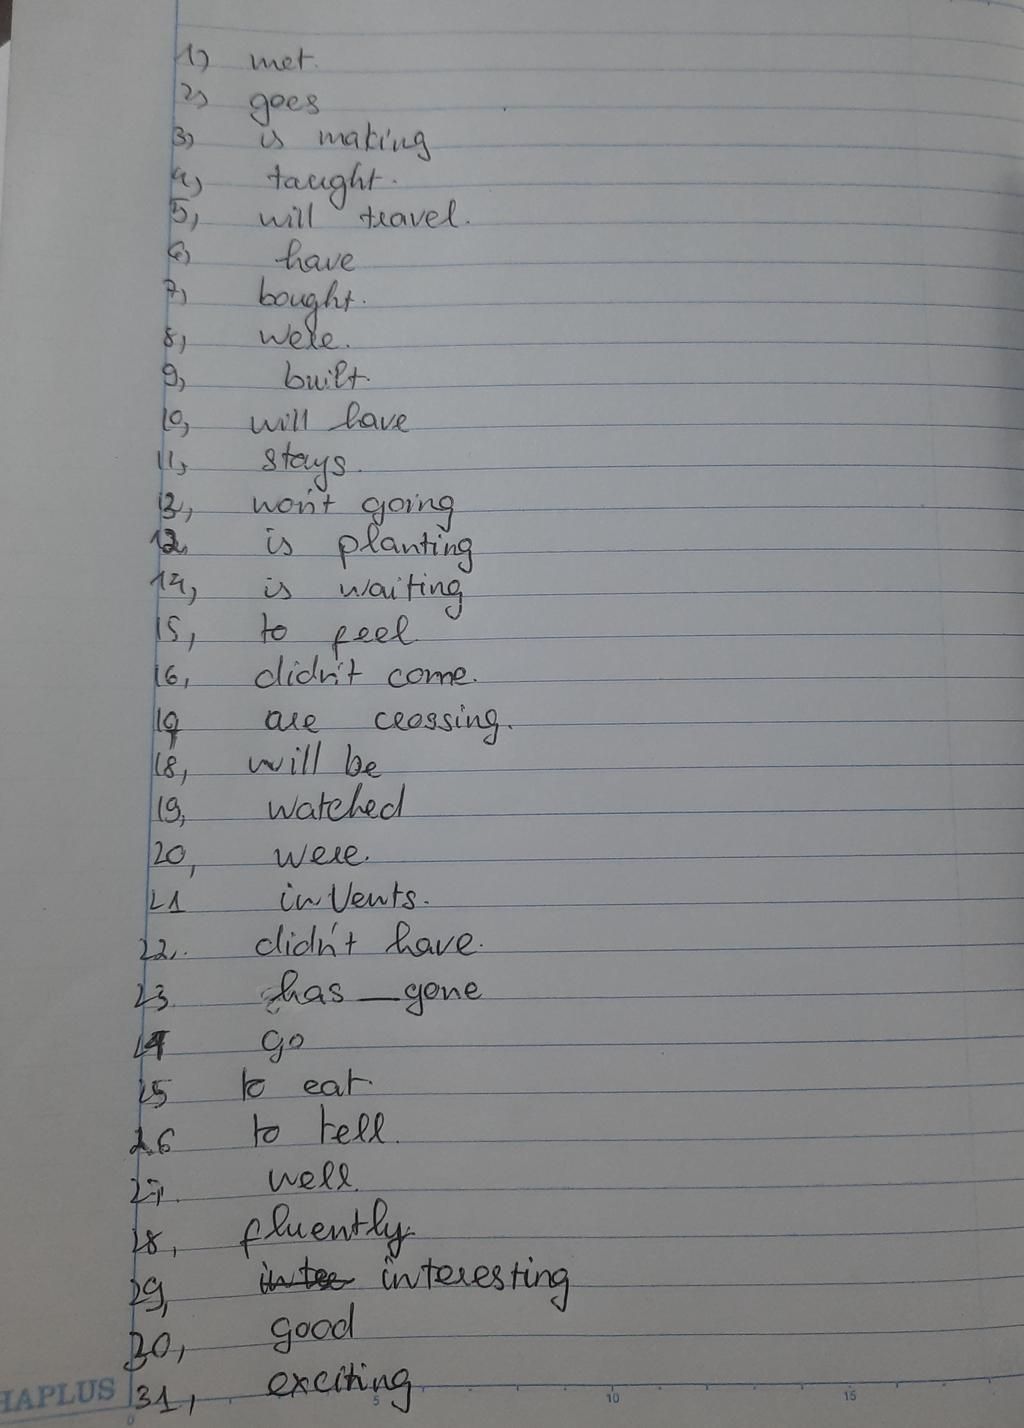 1) met.
2) goes
3) is making
4) taught.
5, will travel.
6) have
7) bought.
8, were.
9, built.
10, will have
11, stays.
12, won't going
13, is planting
14, is waiting
15, to feel
16, didn't come.
17 are crossing.
18, will be
19, watched
20, were.
21 invents.
22. didn't have.
23 has __ gone
24 go
25 to eat.
26 to tell.
27. well.
28, fluently.
29, interesting
30, good
31, exciting
HAPLUS
0 5 10 15